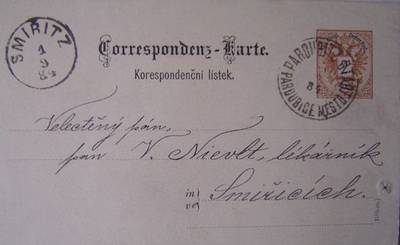 SMIRITZ
1
9
84
Correspondenz-Karte.
Korespondenční lístek.
PARDUBICE MĚSTO
Velectěný pán,
pan V. Nievlt, lékárník
in)
ve)
Smiřicích.